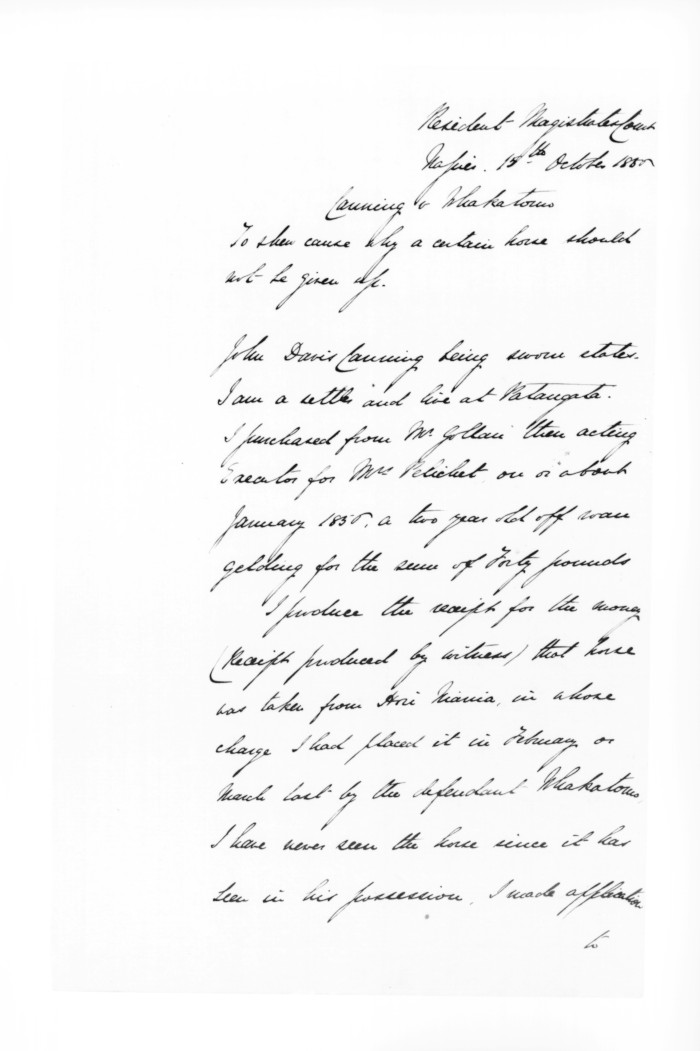 Resident Magistrates Court
Napier. 15th October 185
Canning v Whakatomo
To shew cause why a certain horse should
not be given up.
John Davis Canning being sworn states.
I am a settler and live at Patangata.
I purchased from Mr. Gollan then acting
Executor for Mrs Pelichet, on or about
January 185, a two year old off roan
gelding for the sum of Forty pounds
I produce the receipt for the money
(Receipt produced by witness) that horse
was taken from Hori Niania, in whose
charge I had placed it in February or
March last by the defendant Whakatomo.
I have never seen the horse since it has
been in his possession. I made application
to